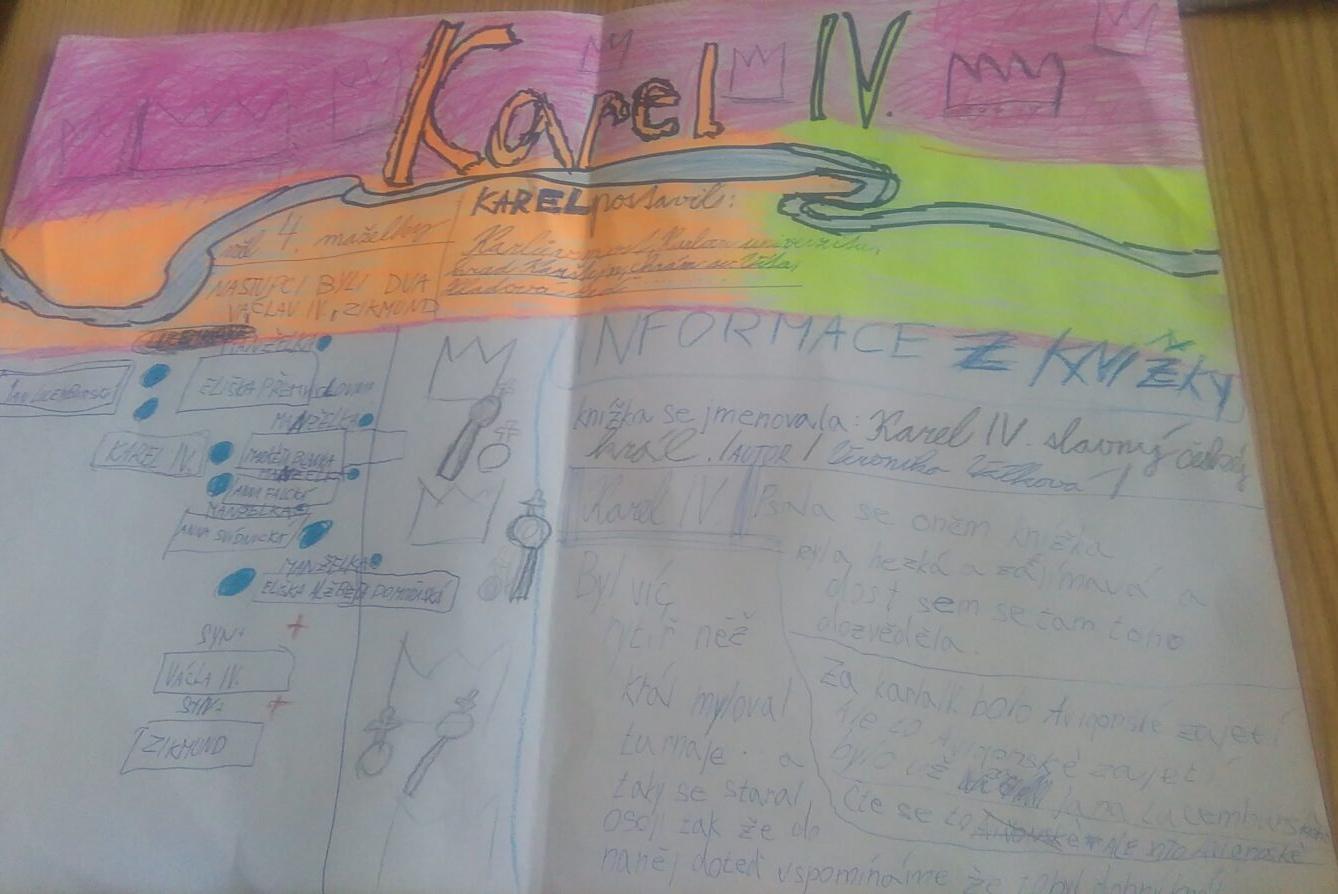 Karel IV.
KAREL postavil:
měl 4. maželky
Karlův most, Karlovu univerzitu,
hrad Karlštejn, chrám sv. Víta,
NÁSTUPCI BYLI DVA
VÁCLAV IV, ZIKMUND
MANŽELKA
JAN LUCEMBURSKÝ
ELIŠKA PŘEMYSLOVNA
MANŽELKA
KAREL IV.
MARKÉTA BLANKA
MANŽELKA
ANNA FALCKÉ
MANŽELKA
ANNA SVÍDNICKÉ
MANŽELKA
ELIŠKA ALŽBĚTA POMOŘSKÁ
SYN
VÁCLA IV.
SYN
ZIKMUND
INFORMACE Z KNÍŽKY
knížka se jmenovala: Karel IV. slavný český
král. /AUTOR/ Veronika Válková /
Karel IV.
Byl víc
rytíř něž
král myloval
turnaje. a
taky se staral
osoji zak že do
naněj doteď vspomínáme že to byl dobrý
Psala se oněm knížka
byla hezká a zajímavá a
dost sem se tam toho
dozvěděla.
Za karla bolo Avignonské zajetí
Ale to Avigonské zajetí
bylo už za Jana Lucemburského
Čte se to ALE